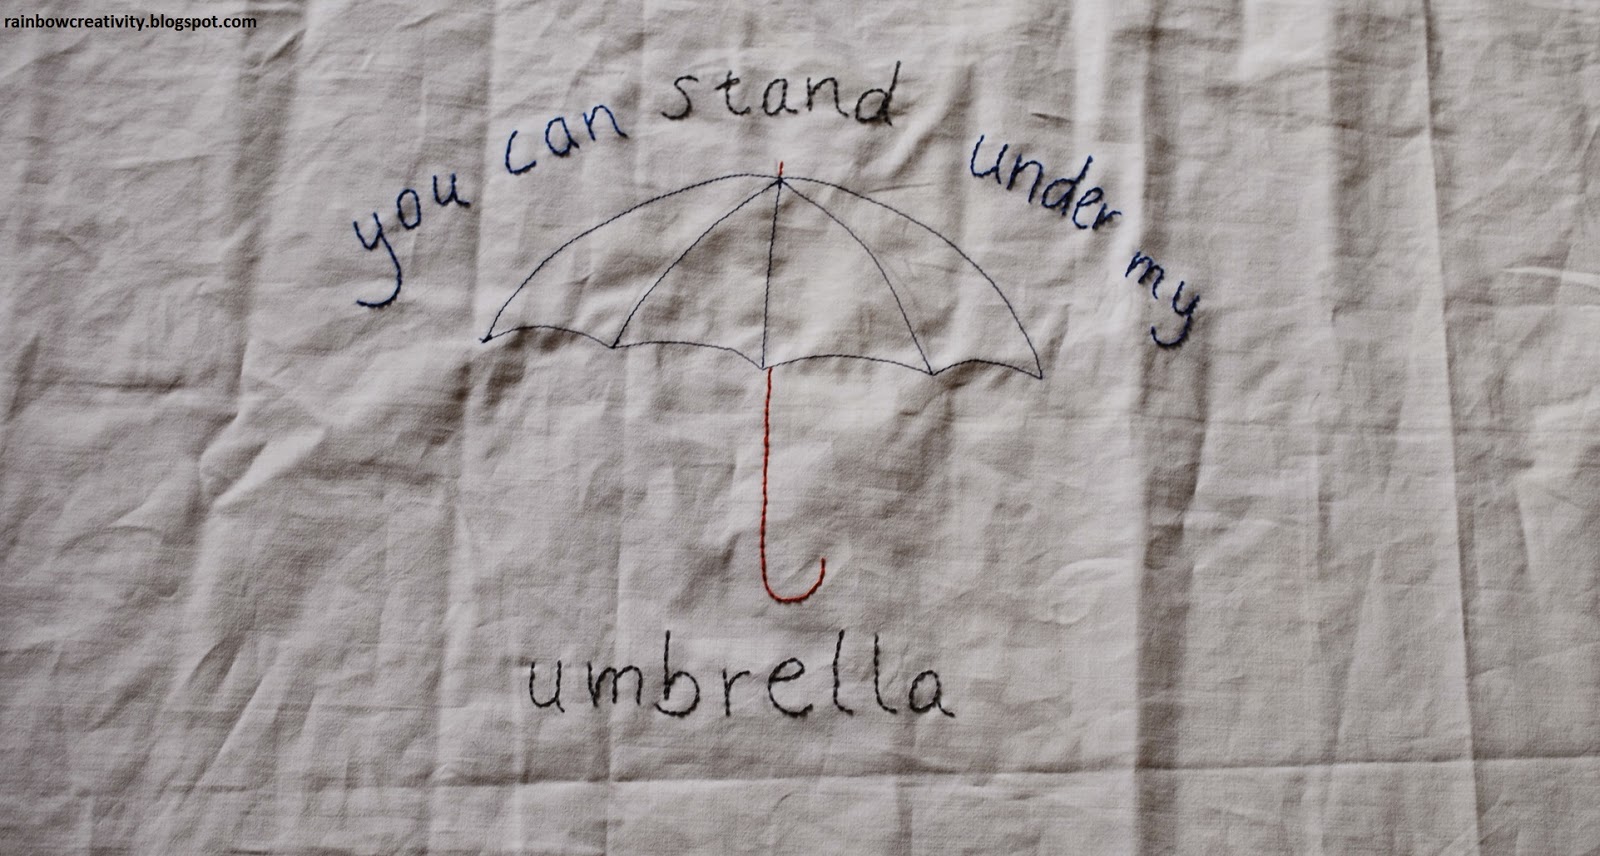 rainbowcreativity.blogspot.com
you can stand under my
umbrella